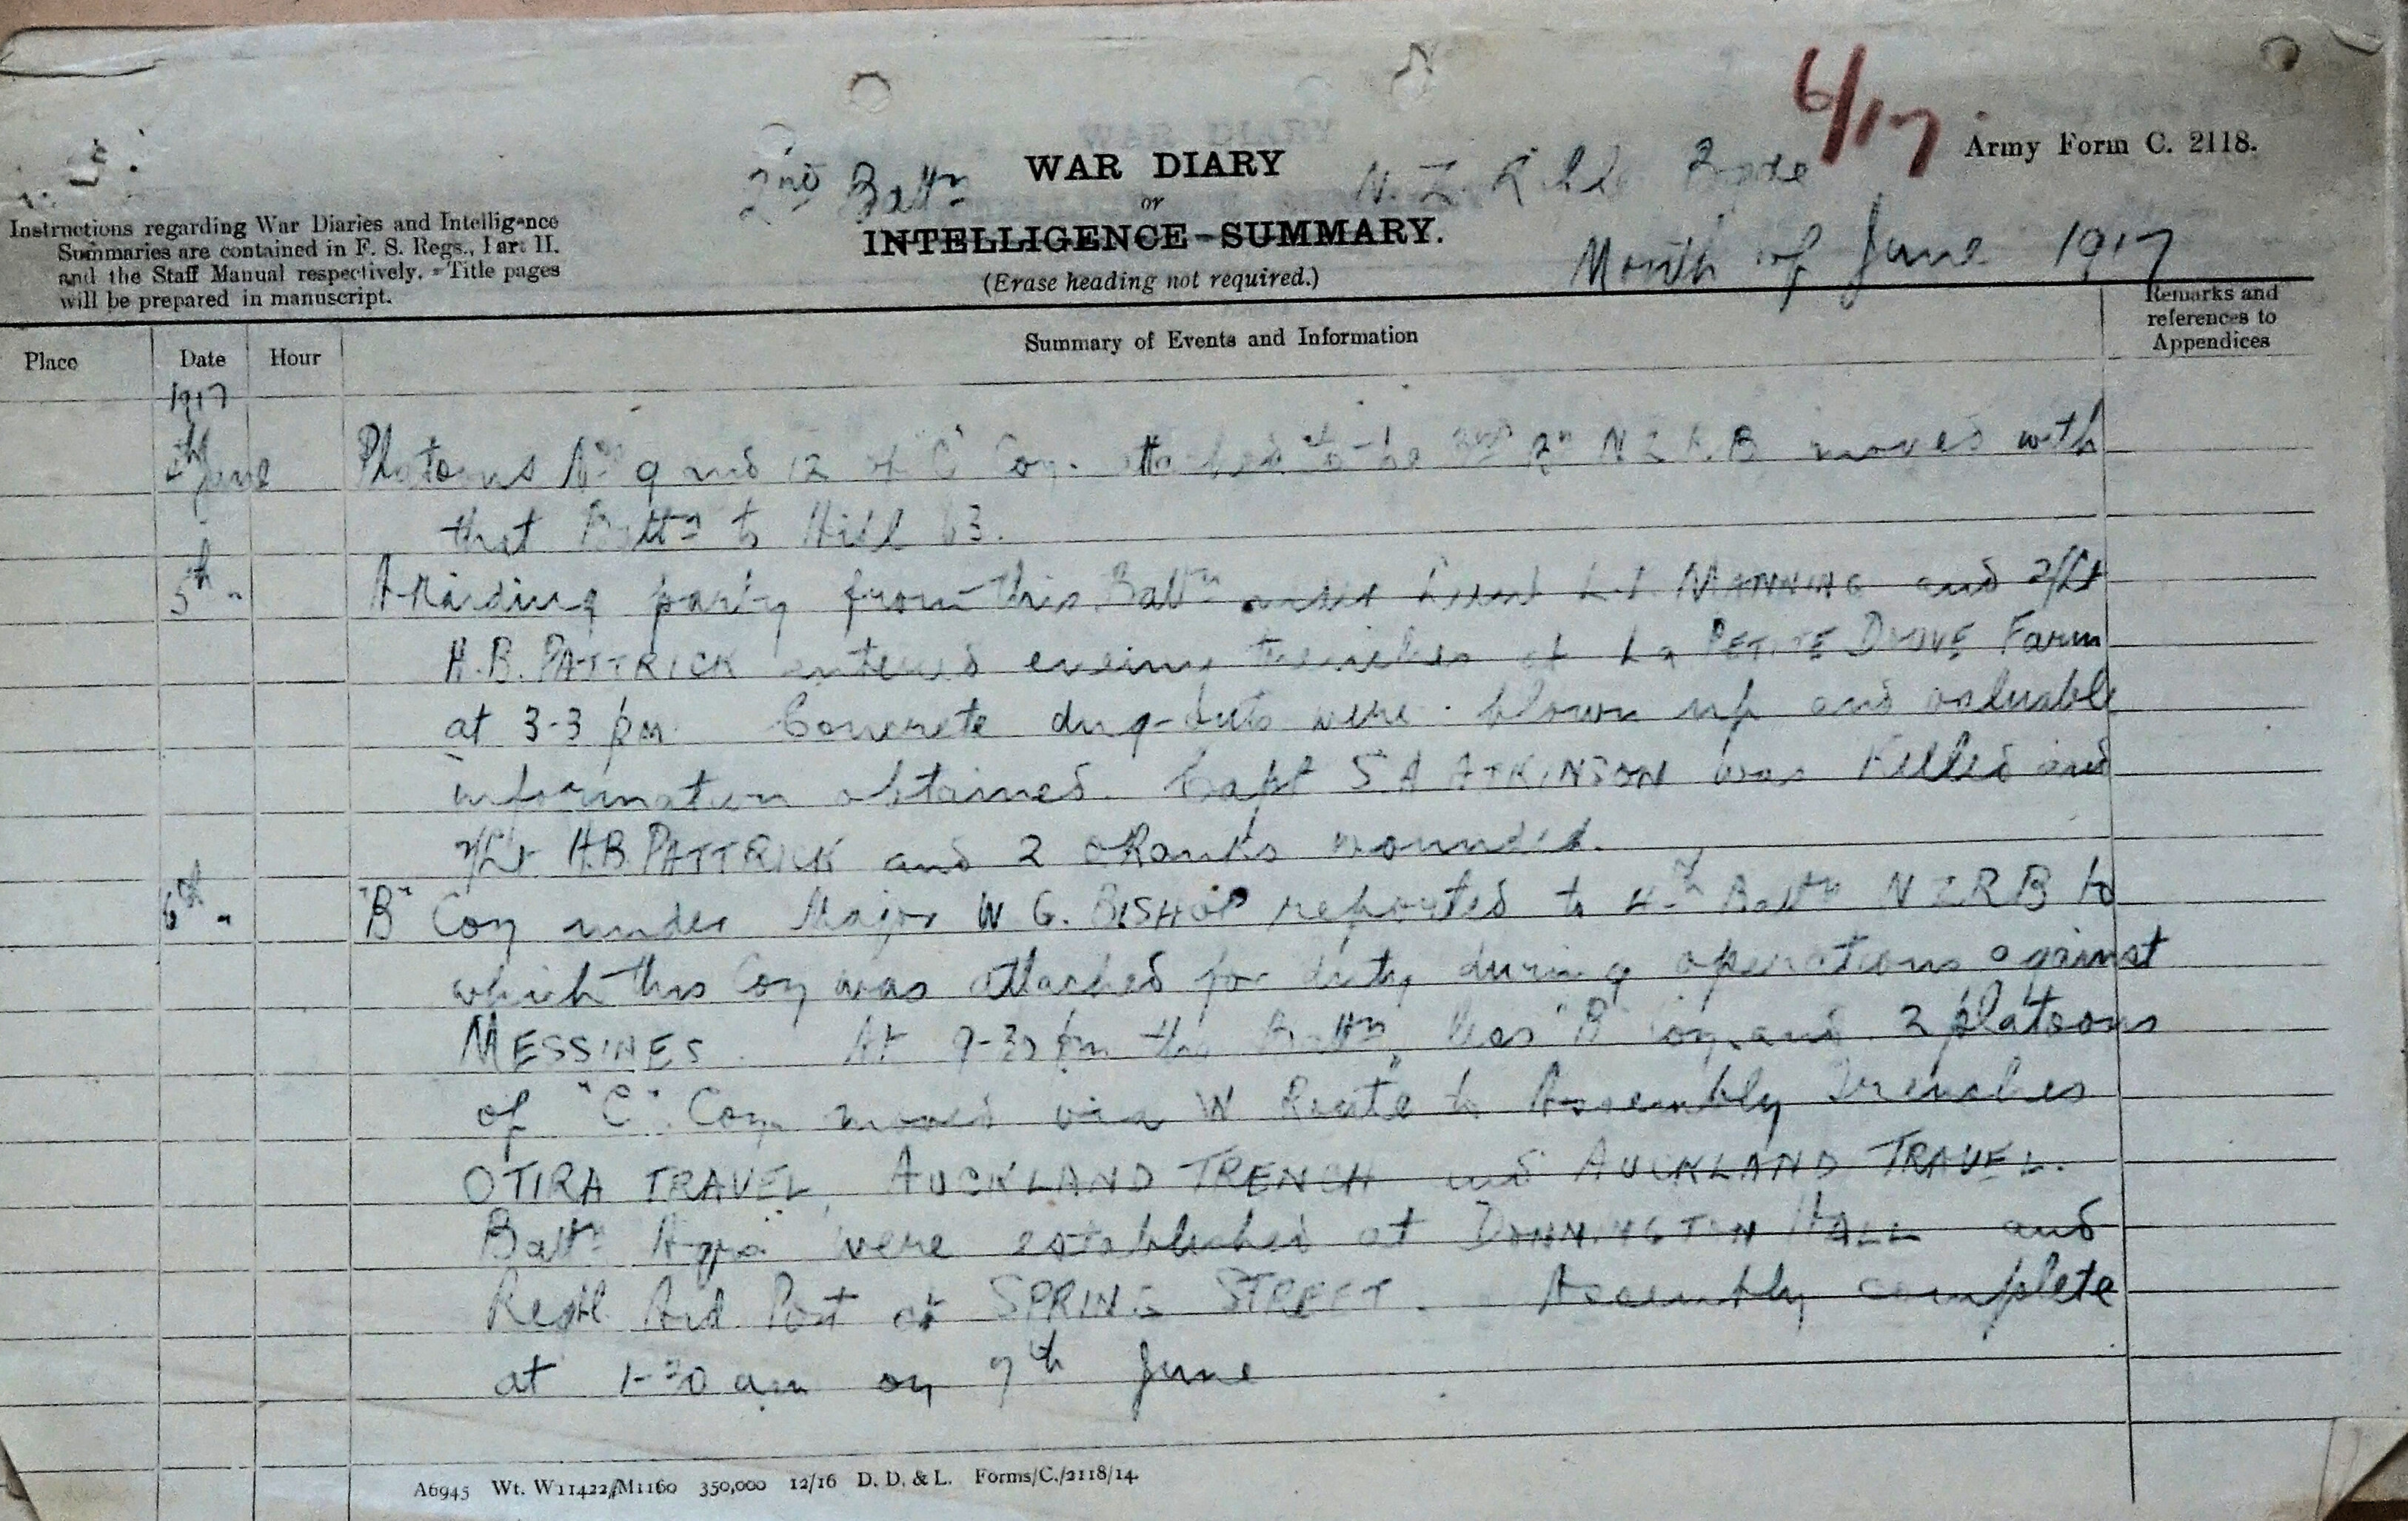 6/17
Army Form C. 2118.
WAR DIARY
2nd Battn N. Z. Rifle Bgde
or
INTELLIGENCE SUMMARY.
(Erase heading not required.)
Month of June 1917
Instructions regarding War Diaries and Intelligence
Summaries are contained in F. S. Regs., Part II.
and the Staff Manual respectively. Title pages
will be prepared in manuscript.
Place Date Hour Summary of Events and Information Remarks and
references to
Appendices
1917
June Platoons Nos 9 and 12 of "C" Coy. attached to the Bn N Z R B moves with
that Battn to Hill 63.
5th " A raiding party from this Battn under Lieut L.I. MANNING and 2/Lt
H.B. PATTRICK entered enemy trenches at La PETITE DOUVE Farm
at 3-3 pm. Concrete dug-outs were blown up and valuable
information obtained. Capt S.A ATKINSON was killed and
2/Lt H.B. PATTRICK and 2 ORanks wounded.
6th " "B" Coy under Major W G. BISHOP reported to 4th Battn N Z R B to
which this Coy was attached for duty during operations against
MESSINES. At 9-30 pm the Battn less "B" Coy and 2 platoons
of "C" Coy moved via W Route to Assembly Trenches
OTIRA TRAVEL, AUCKLAND TRENCH and AUCKLAND TRAVEL.
Battn Hqrs were established at DONNINGTON HALL and
Regtl Aid Post at SPRING STREET. Assembly complete
at 1-30 am on 7th June
A6945 Wt. W11422/M1160 350,000 12/16 D. D. & L. Forms/C./2118/14.